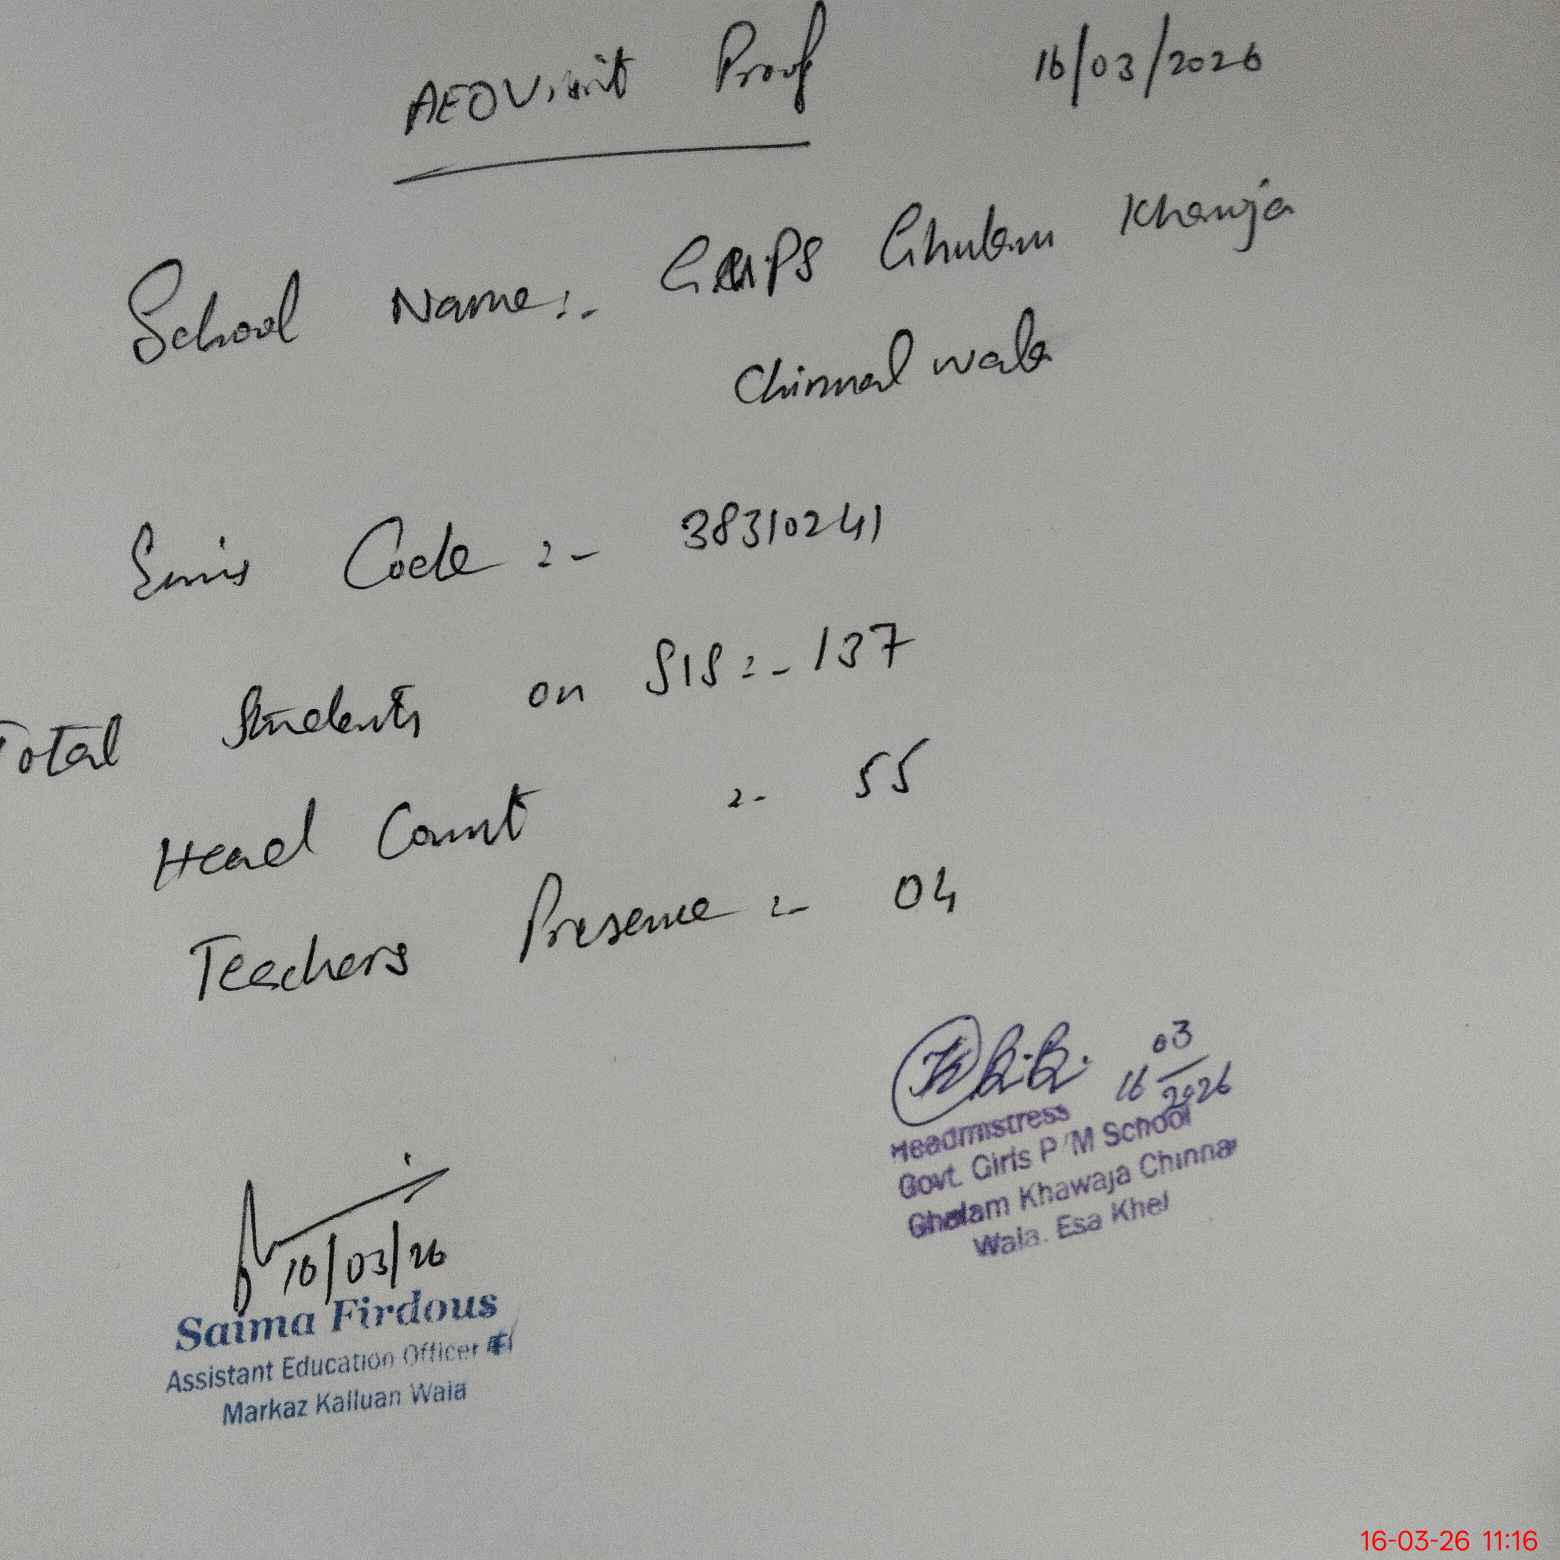 AEO Visit Proof 16/03/2026
School Name:- GMPS Ghulam Khawja
Chinnal wala
Emis Code :- 38310241
Total Students on SIS :- 137
Head Count :- 55
Teachers Presence :- 04
03
16 2026
Headmistress
Govt. Girls P/M School
Ghulam Khawaja Chinna
Wala. Esa Khel
16/03/26
Saima Firdous
Assistant Education Officer
Markaz Kalluan Wala
16-03-26 11:16